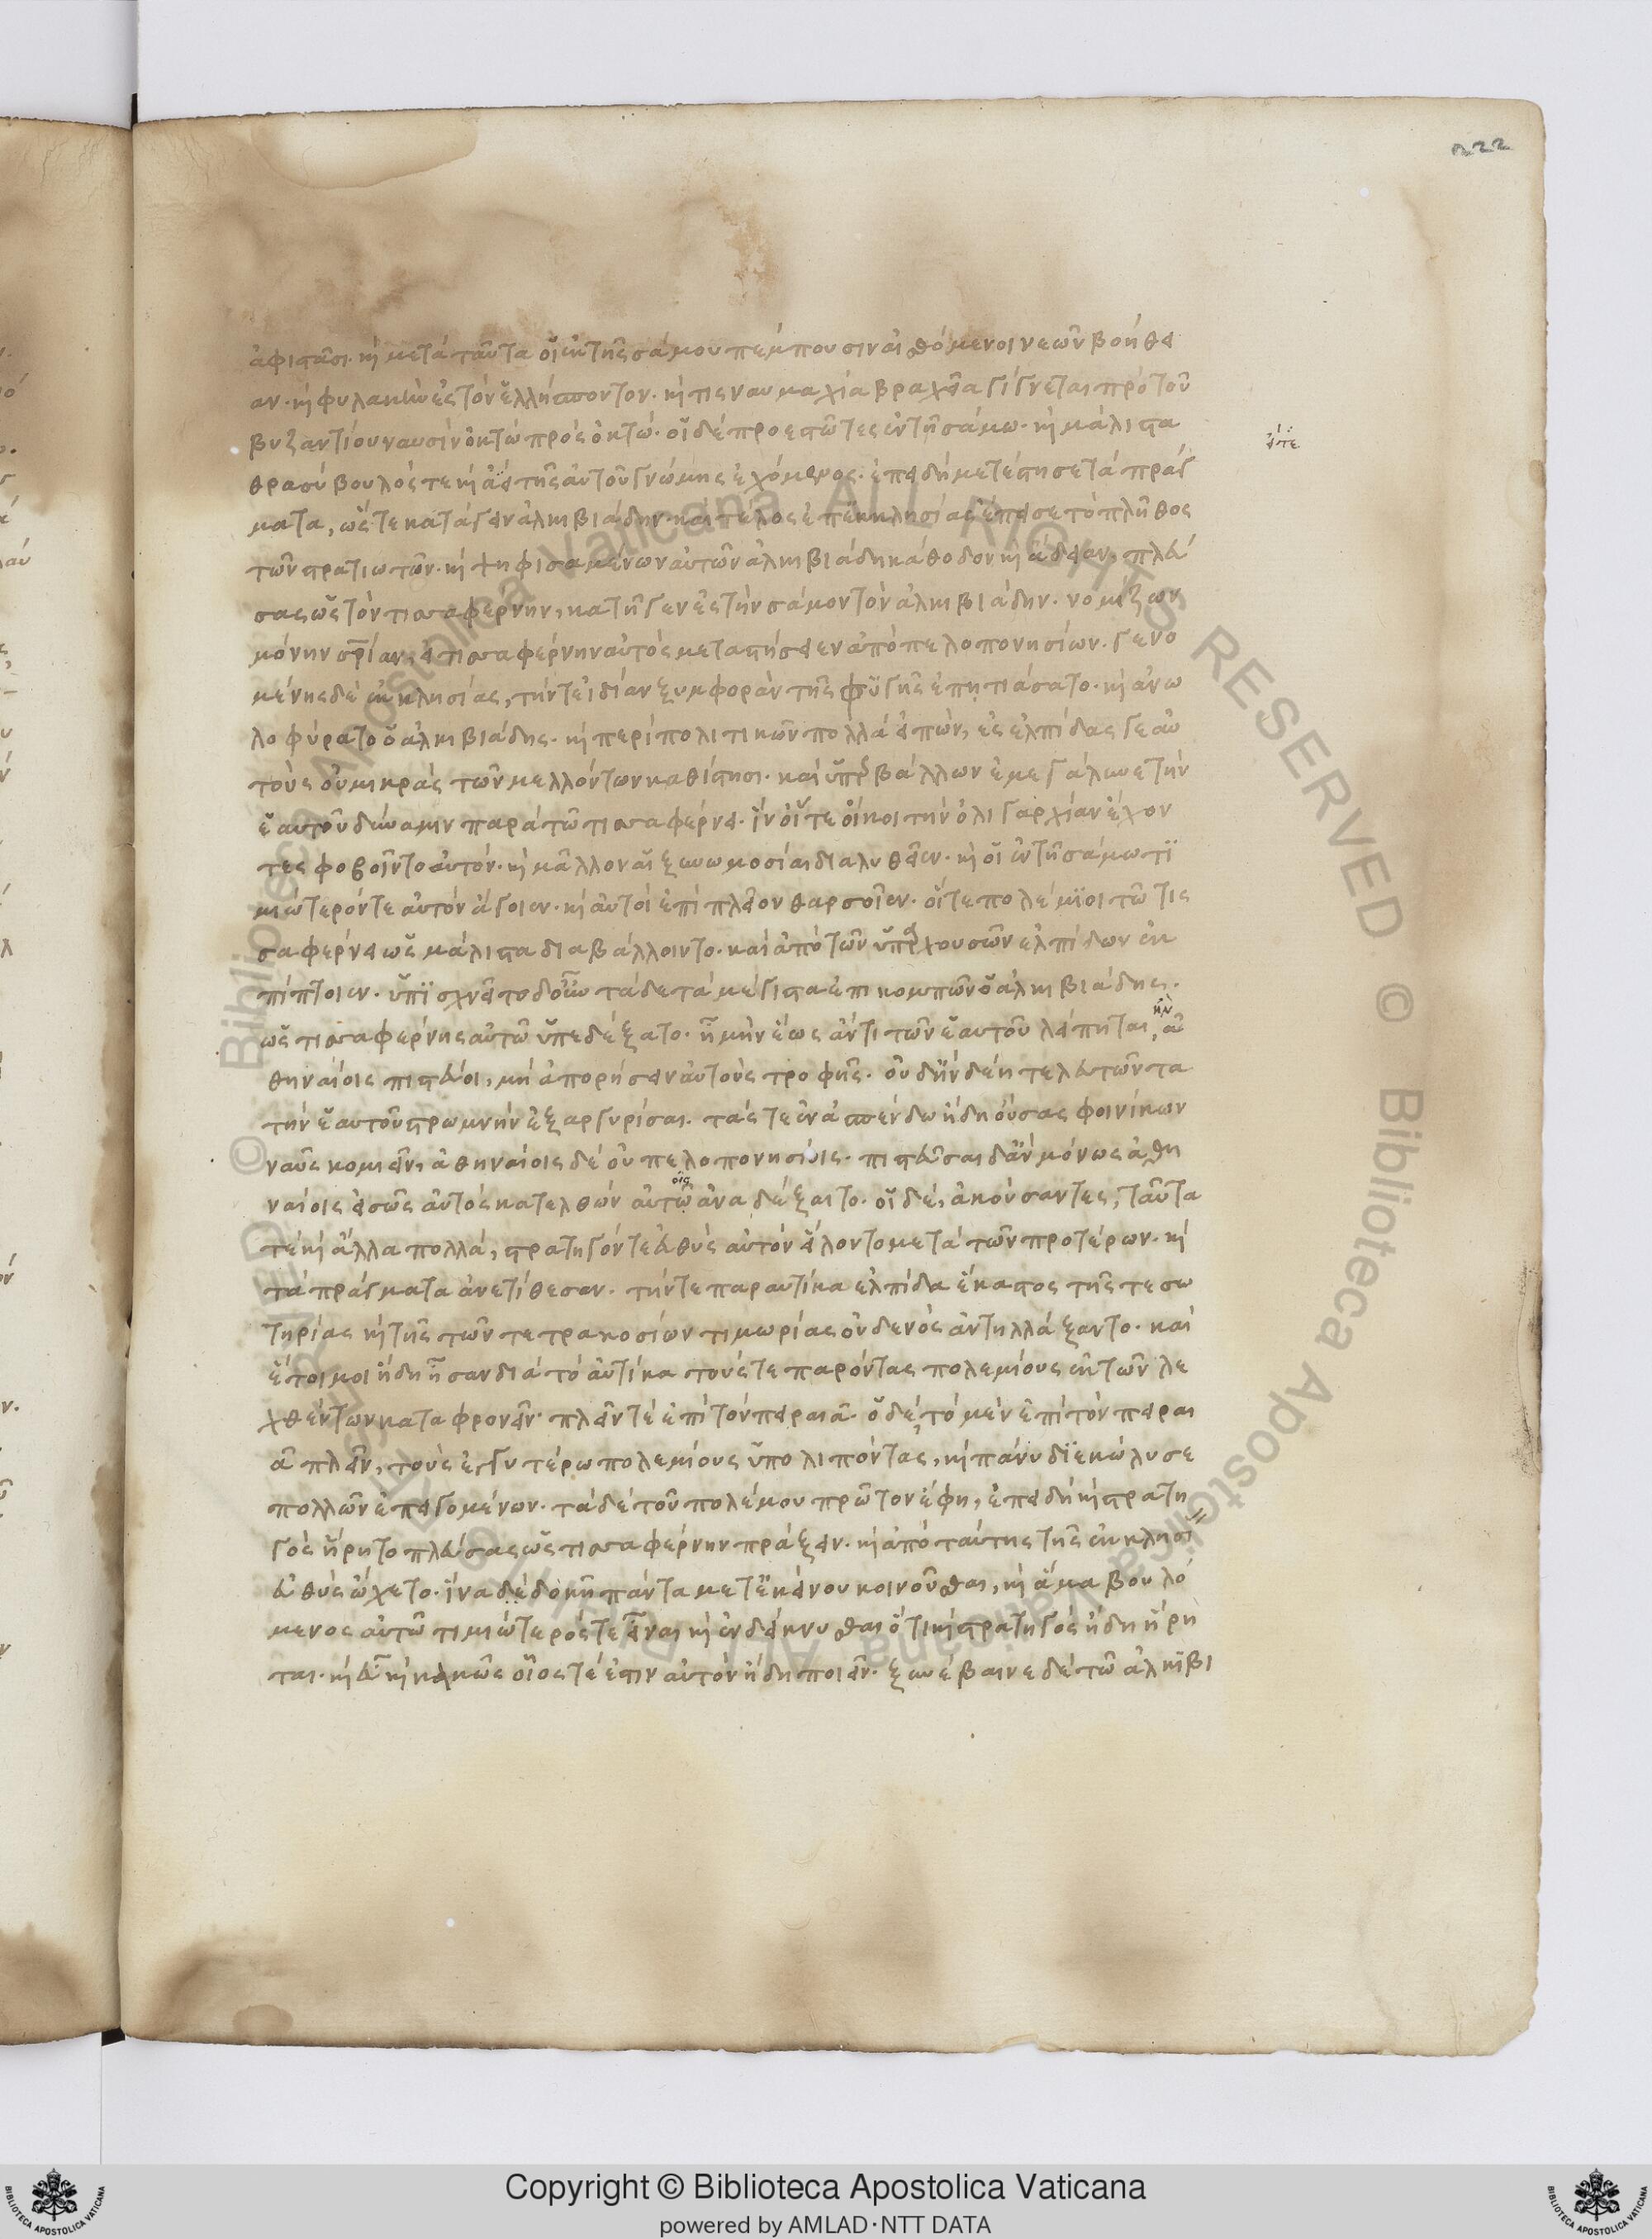 222
ἀφιστᾶσι· καὶ μετὰ ταῦτα οἱ ἐκ τῆς σάμου πέμπουσιν αἰσθόμενοι νεῶν βοήθει
αν· καὶ φυλακὴν ἐς τὸν ἑλλήσποντον· καί τις ναυμαχία βραχεῖα γίγνεται πρὸ τοῦ
βυζαντίου ναυσὶν ὀκτὼ πρὸς ὀκτώ· οἱ δὲ προεστῶτες ἐν τῇ σάμω· καὶ μάλιστα
εἴτε
θρασύβουλός τε καὶ ἀεὶ τῆς αὐτοῦ γνώμης ἐχόμενος· ἐπειδὴ μετέστησε τὰ πράγ
ματα, ὥστε κατάγειν ἀλκιβιάδην· καὶ τέλος ἐπ' ἐκκλησίας ἔπεισε τὸ πλῆθος
τῶν στρατιωτῶν· καὶ ψηφισαμένων αὐτῶν ἀλκιβιάδη κάθοδον καὶ ἄδειαν, πλεύ
σας ὡς τὸν τισσαφέρνην, κατῆγεν ἐς τὴν σάμον τὸν ἀλκιβιάδην· νομίζων
μόνην σρίαν, εἰ τισσαφέρνην αὐτοῖς μεταστήσειεν ἀπὸ πελοπονησίων· γενο
μένης δὲ ἐκκλησίας, τήν τε ἰδίαν ξυμφορὰν τῆς φυγῆς ἐπητιάσατο· καὶ ἀνω
λοφύρατο ὁ ἀλκιβιάδης· καὶ περὶ πολιτικῶν πολλὰ εἰπών, ἐς ἐλπίδας γε αὐ
τοὺς οὐ μικρὰς τῶν μελλόντων καθίστησι· καὶ ὑπερβάλλων ἐμεγάλυνε τὴν
ἑαυτοῦ δύναμιν παρὰ τῶ τισσαφέρνει· ἵν' οἵ τε οἴκοι τὴν ὀλιγαρχίαν ἔχον
τες φοβοῖντο αὐτόν· καὶ μᾶλλον αἱ ξυνωμοσίαι διαλυθεῖεν· καὶ οἱ ἐν τῇ σάμω τι
μιώτερόν τε αὐτὸν ἄγοιεν· καὶ αὐτοὶ ἐπὶ πλεῖον θαρσοῖεν· οἵ τε πολέμιοι τῶ τισ
σαφέρνει ὡς μάλιστα διαβάλλοιντο· καὶ ἀπὸ τῶν ὑπαρχουσῶν ἐλπίδων ἐκ
πίπτοιεν· ὑπισχνεῖτο δοὖν τάδε τὰ μέγιστα ἐπικομπῶν ὁ ἀλκιβιάδης·
ὡς τισσαφέρνης αὐτῶ ὑπεδέξατο· ἦ μὴν ἕως ἄν τι τῶν ἑαυτοῦ λείπηται, ἢν ἀ
θηναίοις πιστεύσῃ, μὴ ἀπορήσειν αὐτοὺς τροφῆς· οὐδ' ἢν δέῃ τελευτῶντα
τὴν ἑαυτοῦ στρωμνὴν ἐξαργυρίσαι· τάς τε ἐν ἀσπένδω ἤδη οὔσας φοινίκων
ναῦς κομιεῖν, ἀθηναίοις δὲ οὐ πελοπονησίοις· πιστεῦσαι δ' ἂν μόνως ἀθη
ναίοις εἰ σῶς αὐτὸς κατελθὼν αὐτῶ οις ἀναδέξαιτο· οἱ δὲ, ἀκούσαντες, ταῦτα
τὲ καὶ ἄλλα πολλά, στρατηγόν τε εὐθὺς αὐτὸν εἵλοντο μετὰ τῶν προτέρων· καὶ
τὰ πράγματα ἀνετίθεσαν· τήν τε παραυτίκα ἐλπίδα ἕκαστος τῆς τε σω
τηρίας καὶ τῆς τῶν τετρακοσίων τιμωρίας οὐδενὸς ἀντηλλάξαντο· καὶ
ἕτοιμοι ἤδη ἦσαν διὰ τὸ αὐτίκα τούς τε παρόντας πολεμίους ἐκ τῶν λε
χθέντων καταφρονεῖν· πλεῖν τὲ ἐπὶ τὸν πειραιᾶ· ὁ δὲ, τὸ μὲν ἐπὶ τὸν πειραι
ᾶ πλεῖν, τοὺς ἐγγυτέρω πολεμίους ὑπολιπόντας, καὶ πάνυ διεκώλυσε
πολλῶν ἐπειγομένων· τὰ δὲ τοῦ πολέμου πρῶτον ἔφη, ἐπειδὴ καὶ στρατη
γὸς ᾕρητο πλεύσας ὡς τισσαφέρνην πράξειν· καὶ ἀπὸ ταύτης τῆς ἐκκλησί
εὐθὺς ᾤχετο· ἵνα δὲ δοκῇ πάντα μετ' ἐκείνου κοινοῦσθαι, καὶ ἅμα βουλό
μενος αὐτῶ τιμιώτερός τε εἶναι καὶ ἐνδείκνυσθαι ὅτι καὶ στρατηγὸς ἤδη ᾕρη
ται· καὶ εὖ καὶ κακῶς οἷός τέ ἐστιν αὐτὸν ἤδη ποιεῖν· ξυνέβαινε δὲ τῶ ἀλκιβι
Copyright © Biblioteca Apostolica Vaticana
powered by AMLAD·NTT DATA